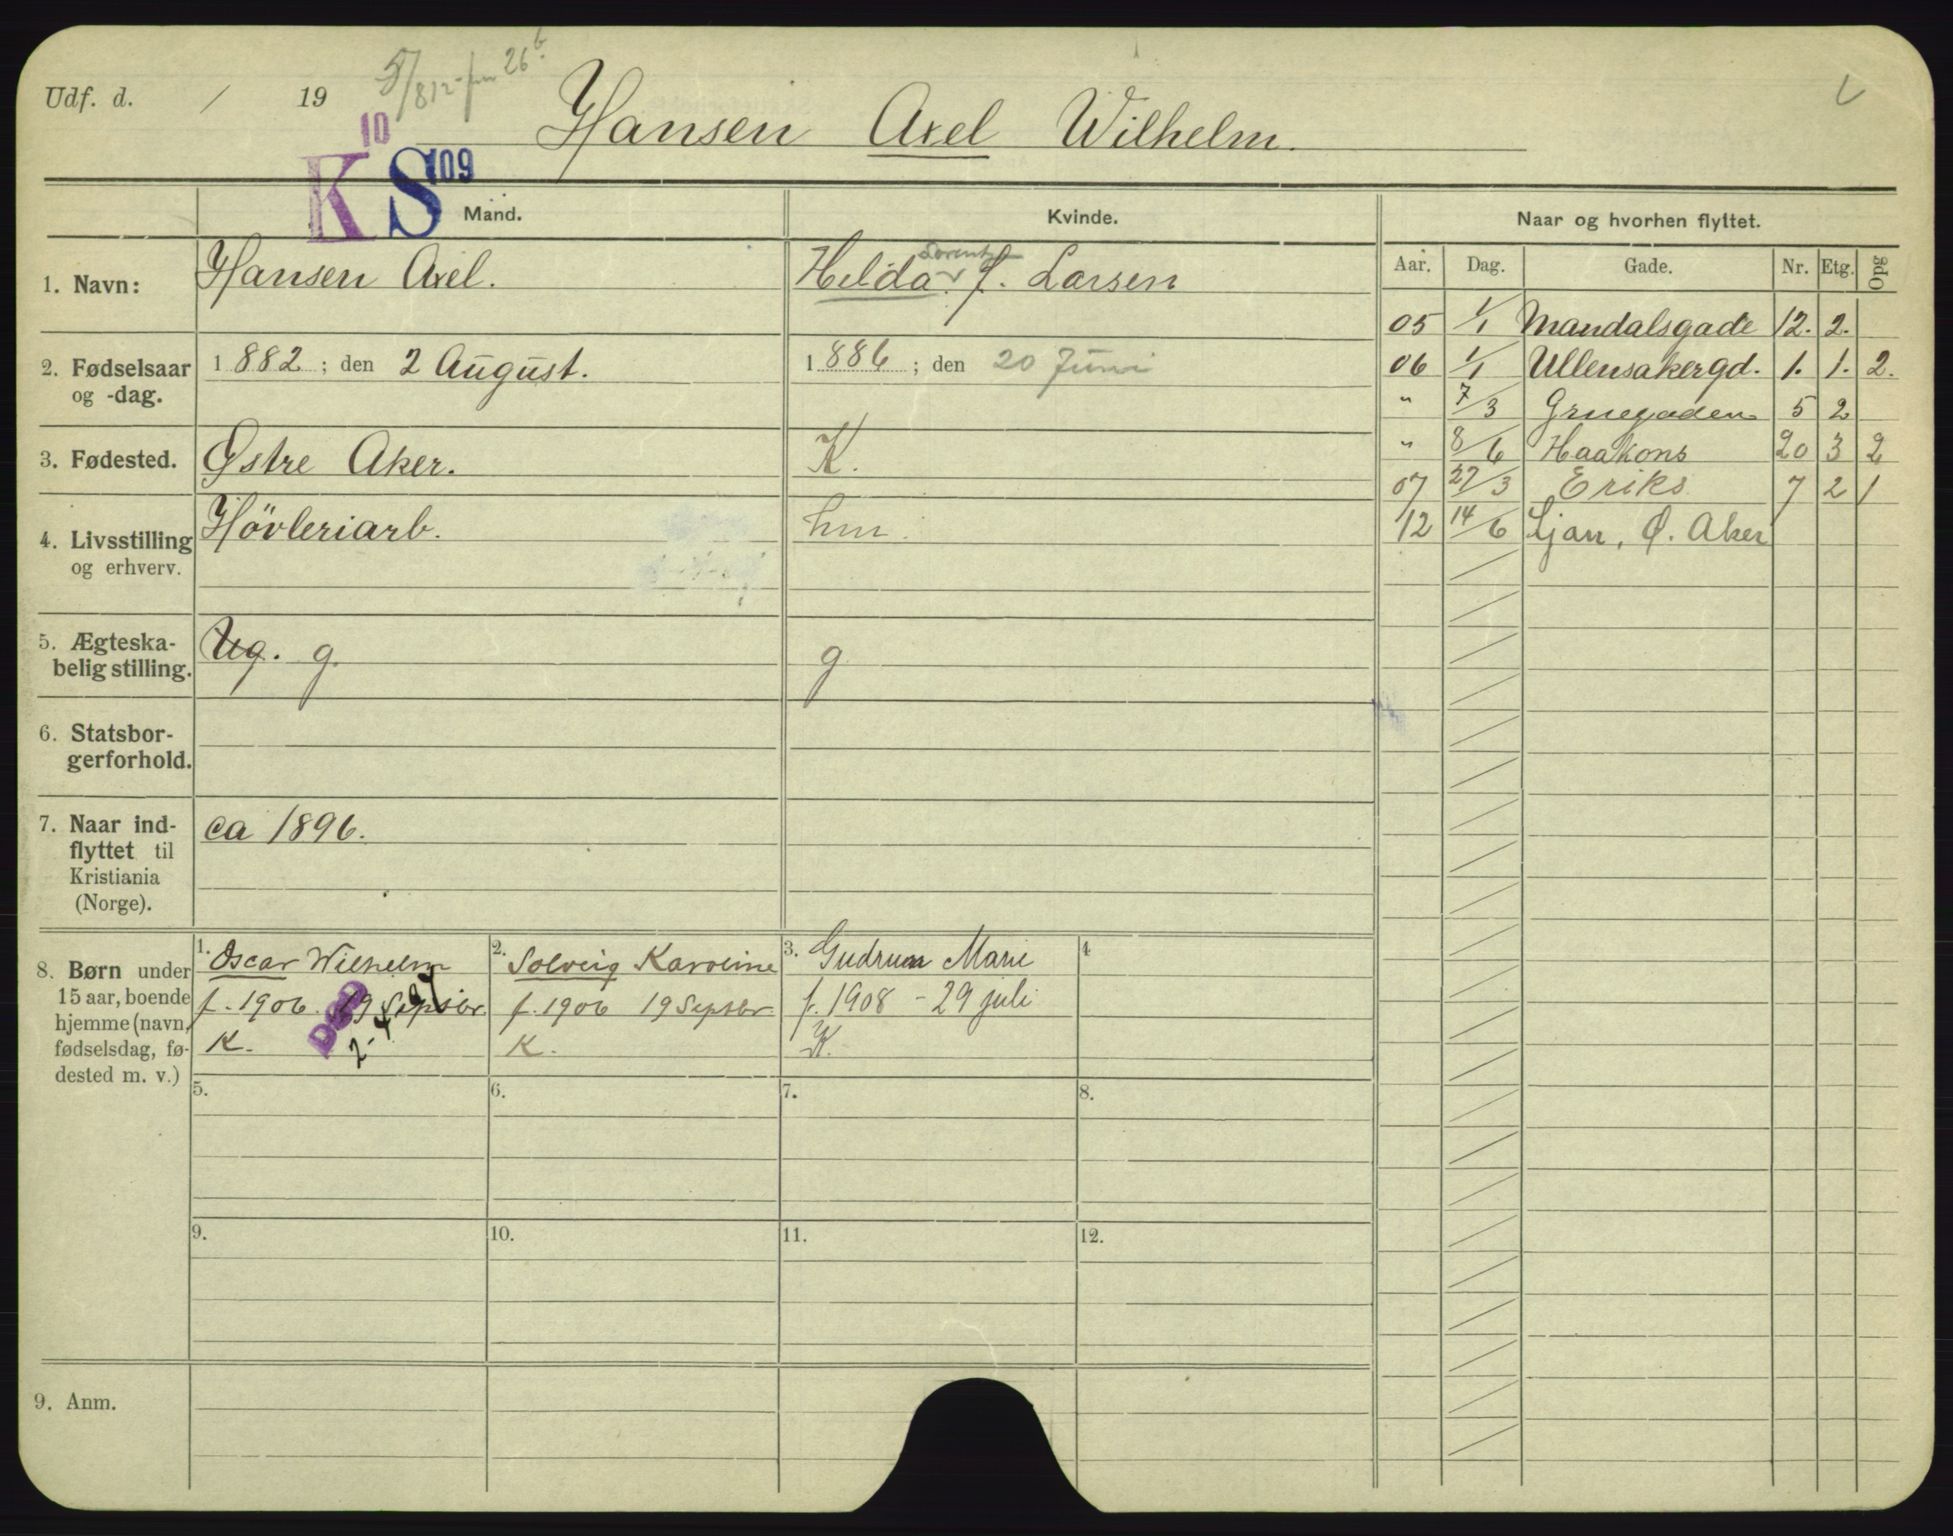 Udf. d. / 19
Hansen Axel Wilhelm.
10
K S 109
Mand. Kvinde. Naar og hvorhen flyttet.
Aar. Dag. Gade. Nr. Etg. Opg
1. Navn: Hansen Axel. Helda f. Larsen
2. Fødselsaar 1882 ; den 2 August. 1886 ; den 20 Juni
og -dag.
3. Fødested. Østre Aker. K.
4. Livsstilling Hövleriarb. hm.
og erhverv.
5. Ægteska- Ug. g. g
belig stilling.
6. Statsbor-
gerforhold.
7. Naar ind- ca 1896.
flyttet til
Kristiania
(Norge).
05 1/1 Mandalsgade 12. 2.
06 1/1 Ullensakergd. 1. 1. 2.
" 7/3 Gruegaden 5 2
" 8/6 Haakons 20 3 2
07 27/3 Eriks 7 2 1
12 14/6 Ljan, Ø. Aker
8. Børn under
15 aar, boende
hjemme (navn,
fødselsdag, fø-
dested m. v.)
1. Oscar Wilhelm
f. 1906 19 Septbr.
K.
DØD
2. Solveig Karoline
f. 1906 19 Septbr
K.
3. Gudrun Marie
f. 1908 - 29 juli
K.
4
5. 6. 7. 8.
9. 10. 11. 12.
9. Anm.